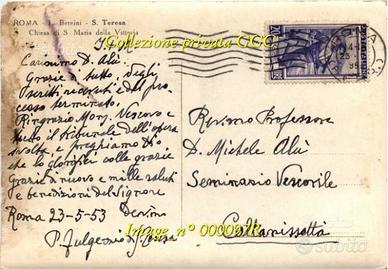 ROMA - L. Bernini - S. Teresa
Chiesa di S. Maria della Vittoria
Collezione privata GGC
Carissimo D. Alù:
Grazie di tutto, degli
scritti ricevuti e del pro
cesso terminato.
Ringrazio Mons. Vescovo e
tutto il tribunale dell'opera
svolta e preghiamo Dio
che lo glorifichi colle grazie
Grazie di nuovo e mille saluti
e benedizioni del Signore
Roma 23-5-53
P. Fulgenzio
Rev.mo Professore
D. Michele Alù
Seminario Vescovile
Caltanissetta
Image n° 0000978
subito